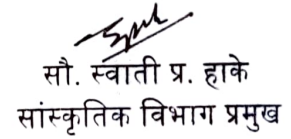 सौ. स्वाती प्र. हाके
सांस्कृतिक विभाग प्रमुख